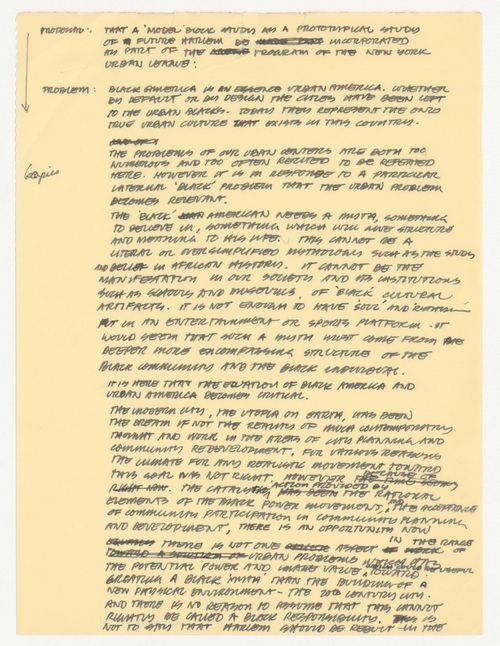 PROPOSAL: THAT A 'MODEL' BLOCK STUDY AS A PROTOTYPICAL STUDY
OF A FUTURE HARLEM BE INCORPORATED
AS PART OF THE PROGRAM OF THE NEW YORK
URBAN LEAGUE.
PROBLEM: BLACK AMERICA IS IN ESSENCE URBAN AMERICA. WHETHER
BY DEFAULT OR BY DESIGN THE CITIES HAVE BEEN LEFT
TO THE URBAN BLACKS. TODAY THEY REPRESENT THE ONLY
TRUE URBAN CULTURE THAT EXISTS IN THIS COUNTRY.
THE PROBLEMS OF OUR URBAN CENTERS ARE BOTH TOO
NUMEROUS AND TOO OFTEN RECITED TO BE REPEATED
6 copies
HERE. HOWEVER IT IS IN RESPONSE TO A PARTICULAR
INTERNAL 'BLACK' PROBLEM THAT THE URBAN PROBLEM
BECOMES RELEVANT.
THE 'BLACK' AMERICAN NEEDS A MYTH, SOMETHING
TO BELIEVE IN, SOMETHING WHICH WILL GIVE STRUCTURE
AND MEANING TO HIS LIFE. THIS CANNOT BE A
LITERAL OR OVERSIMPLIFIED MYTHOLOGY SUCH AS THE STUDY
AND BELIEF IN AFRICAN HISTORY. IT CANNOT BE THE
MANIFESTATION IN OUR SOCIETY AND ITS INSTITUTIONS
SUCH AS SCHOOLS AND MUSEUMS, OF 'BLACK' CULTURAL
ARTIFACTS. IT IS NOT ENOUGH TO HAVE 'SOUL' AND 'RHYTHM'
IN AN ENTERTAINMENT OR SPORTS PLATFORM. IT
WOULD SEEM THAT SUCH A MYTH MUST COME FROM THE
DEEPER MORE ENCOMPASSING STRUCTURE OF THE
BLACK COMMUNITY AND THE BLACK INDIVIDUAL.
IT IS HERE THAT THE EQUATION OF BLACK AMERICA AND
URBAN AMERICA BECOMES CRITICAL.
THE MODERN CITY, THE UTOPIA ON EARTH, HAS BEEN
THE DREAM IF NOT THE REALITY OF MUCH CONTEMPORARY
THOUGHT AND WORK IN THE AREAS OF CITY PLANNING AND
COMMUNITY REDEVELOPMENT. FOR VARIOUS REASONS
THE CLIMATE FOR ANY REALISTIC MOVEMENT TOWARD
THIS GOAL WAS NOT RIGHT. HOWEVER BECAUSE OF
THE CATALYTIC ACTION PROVIDED BY THE RATIONAL
ELEMENTS OF THE BLACK POWER MOVEMENT, AND THE ACCEPTANCE
OF COMMUNITY PARTICIPATION IN COMMUNITY PLANNING
AND DEVELOPMENT, THERE IS AN OPPORTUNITY NOW
THERE IS NOT ONE ASPECT IN THE RANGE OF
URBAN PROBLEMS WHICH HAS
THE POTENTIAL POWER AND IMAGE VALUE TOWARD
CREATING A BLACK MYTH THAN THE BUILDING OF A
NEW PHYSICAL ENVIRONMENT - THE 20TH CENTURY CITY.
AND THERE IS NO REASON TO ASSUME THAT THIS CANNOT
RIGHTLY BE CALLED A BLACK RESPONSIBILITY. THIS IS
NOT TO SAY THAT HARLEM SHOULD BE REBUILT IN THE